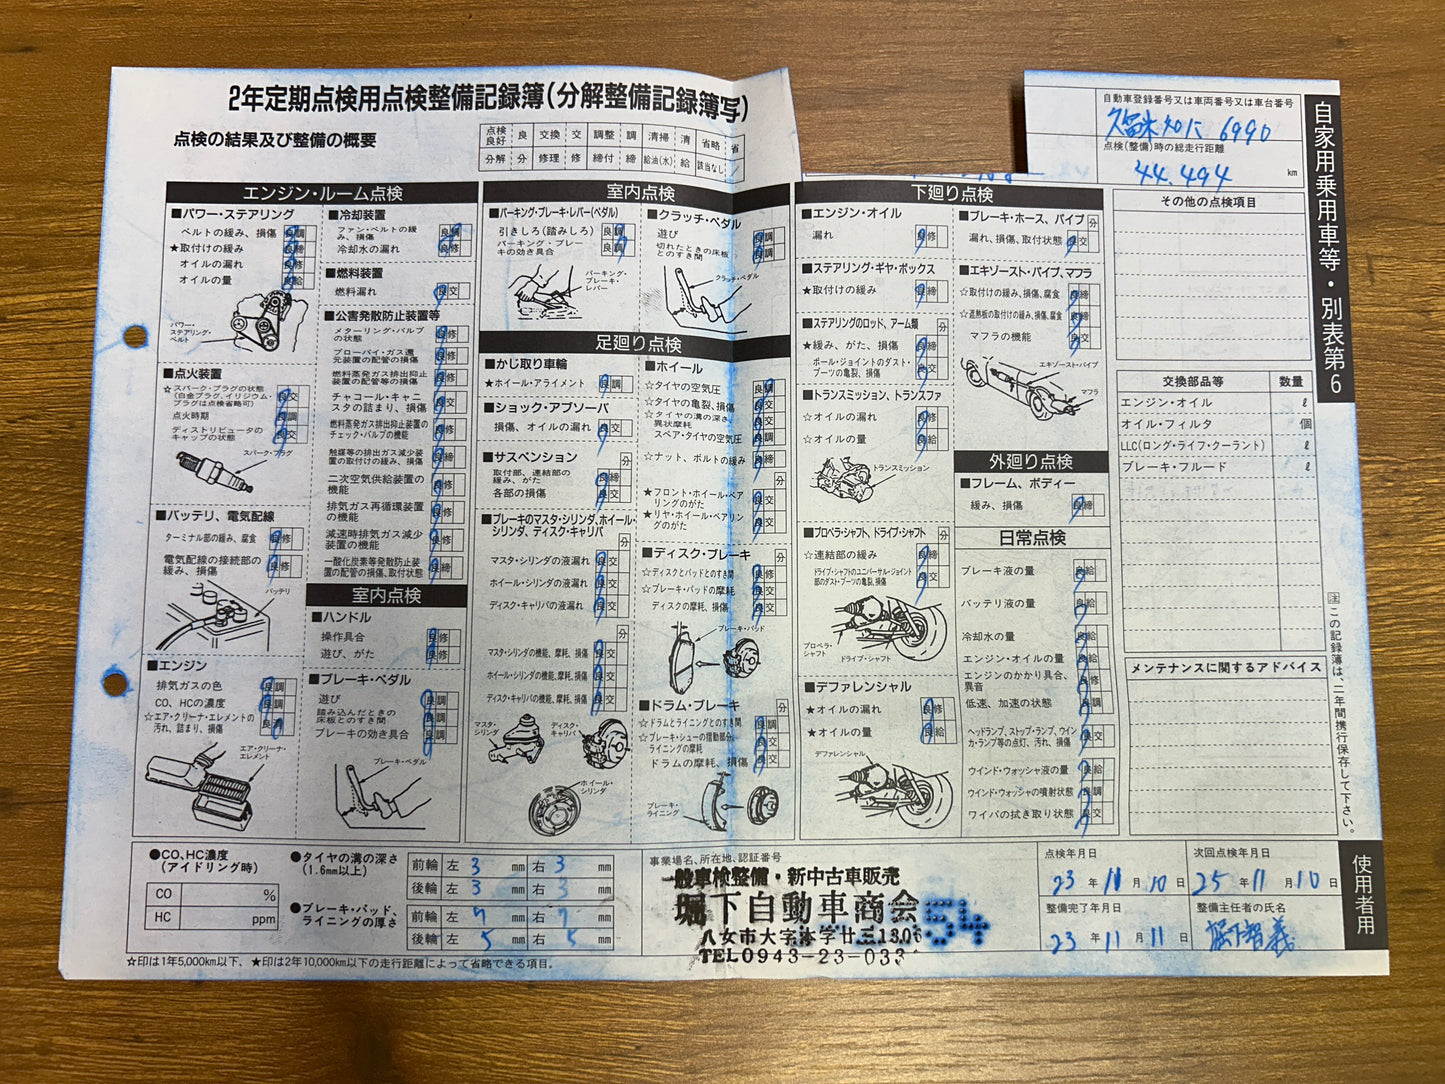 2年定期点検用点検整備記録簿(分解整備記録簿写)
点検の結果及び整備の概要
点検良好 良 交換 交 調整 調 清掃 清 省略 省
分解 分 修理 修 締付 締 給油(水) 給 該当なし
自動車登録番号又は車両番号又は車台番号
久留米 6990
点検(整備)時の総走行距離
44,494 km
自家用乗用車等・別表第6
エンジン・ルーム点検
■パワー・ステアリング
ベルトの緩み、損傷 良 調
★取付けの緩み 良 締
オイルの漏れ 良 修
オイルの量 良 給
パワー・ステアリング・ベルト
■点火装置
☆スパーク・プラグの状態
(白金プラグ、イリジウム・プラグは点検省略可) 良 交
点火時期 良 調
ディストリビュータのキャップの状態 良 交
スパーク・プラグ
■バッテリ、電気配線
ターミナル部の緩み、腐食 良 修
電気配線の接続部の緩み、損傷 良 修
バッテリ
■エンジン
排気ガスの色 良 調
CO、HCの濃度 良 調
☆エア・クリーナ・エレメントの汚れ、詰まり、損傷 良
エア・クリーナ・エレメント
■冷却装置
ファン・ベルトの緩み、損傷 良 調
冷却水の漏れ 良 修
■燃料装置
燃料漏れ 良 交
■公害発散防止装置等
メターリング・バルブの状態 良 修
ブローバイ・ガス還元装置の配管の損傷 良 修
燃料蒸発ガス排出抑止装置の配管等の損傷 良 修
チャコール・キャニスタの詰まり、損傷 良 交
燃料蒸発ガス排出抑止装置のチェック・バルブの機能 良 修
触媒等の排出ガス減少装置の取付けの緩み、損傷 良 締
二次空気供給装置の機能 良 修
排気ガス再循環装置の機能 良 修
減速時排気ガス減少装置の機能 良 修
一酸化炭素等発散防止装置の配管の損傷、取付状態 良 締
室内点検
■ハンドル
操作具合 良 修
遊び、がた 良 修
■ブレーキ・ペダル
遊び 良 調
踏み込んだときの床板とのすき間 良 調
ブレーキの効き具合 良 調
ブレーキ・ペダル
室内点検
■パーキング・ブレーキ・レバー(ペダル)
引きしろ(踏みしろ) 良 調
パーキング・ブレーキの効き具合 良 調
パーキング・ブレーキ・レバー
■クラッチ・ペダル
遊び 良 調
切れたときの床板とのすき間 良 調
クラッチ・ペダル
足廻り点検
■かじ取り車輪
★ホイール・アライメント 良 調
■ショック・アブソーバ
損傷、オイルの漏れ 良 交
■サスペンション 分
取付部、連結部の緩み、がた 良 締
各部の損傷 良 交
■ブレーキのマスタ・シリンダ、ホイール・シリンダ、ディスク・キャリパ 分
マスタ・シリンダの液漏れ 良 交
ホイール・シリンダの液漏れ 良 交
ディスク・キャリパの液漏れ 良 交
分
マスタ・シリンダの機能、摩耗、損傷 良 交
ホイール・シリンダの機能、摩耗、損傷 良 交
ディスク・キャリパの機能、摩耗、損傷 良 交
マスタ・シリンダ
ディスク・キャリパ
ホイール・シリンダ
■ホイール
☆タイヤの空気圧 良 調
☆タイヤの亀裂、損傷 良 交
☆タイヤの溝の深さ、異状摩耗 良 交
スペア・タイヤの空気圧 良 調
☆ナット、ボルトの緩み 良 締
分
★フロント・ホイール・ベアリングのがた 良 交
★リヤ・ホイール・ベアリングのがた 良 交
■ディスク・ブレーキ 分
☆ディスクとパッドとのすき間 良 修
☆ブレーキ・パッドの摩耗 良 交
ディスクの摩耗、損傷 良 交
ブレーキ・パッド
■ドラム・ブレーキ 分
☆ドラムとライニングとのすき間 良 調
☆ブレーキ・シューの摺動部分、ライニングの摩耗 良 交
ドラムの摩耗、損傷 良 交
ブレーキ・ライニング
下廻り点検
■エンジン・オイル
漏れ 良 修
■ステアリング・ギヤ・ボックス
★取付けの緩み 良 締
■ステアリングのロッド、アーム類 分
★緩み、がた、損傷 良 締
ボール・ジョイントのダスト・ブーツの亀裂、損傷 良 交
■トランスミッション、トランスファ
☆オイルの漏れ 良 修
☆オイルの量 良 給
トランスミッション
■プロペラ・シャフト、ドライブ・シャフト 分
☆連結部の緩み 良 締
ドライブ・シャフトのユニバーサル・ジョイント部のダスト・ブーツの亀裂、損傷 良 交
プロペラ・シャフト
ドライブ・シャフト
■デファレンシャル
★オイルの漏れ 良 修
★オイルの量 良 給
デファレンシャル
■ブレーキ・ホース、パイプ 分
漏れ、損傷、取付状態 良 交
■エキゾースト・パイプ、マフラ
☆取付けの緩み、損傷、腐食 良 締
☆遮熱板の取付けの緩み、損傷、腐食 良 締
マフラの機能 良 交
エキゾースト・パイプ
マフラ
外廻り点検
■フレーム、ボディー
緩み、損傷 良 締
日常点検
ブレーキ液の量 良 給
バッテリ液の量 良 給
冷却水の量 良 給
エンジン・オイルの量 良 給
エンジンのかかり具合、異音 良 修
低速、加速の状態 良 調
ヘッドランプ、ストップ・ランプ、ウインカ・ランプ等の点灯、汚れ、損傷 良 交
ウインド・ウォッシャ液の量 良 給
ウインド・ウォッシャの噴射状態 良 調
ワイパの拭き取り状態 良 交
その他の点検項目
交換部品等 数量
エンジン・オイル ℓ
オイル・フィルタ 個
LLC(ロング・ライフ・クーラント) ℓ
ブレーキ・フルード ℓ
メンテナンスに関するアドバイス
注 この記録簿は、二年間携行保存して下さい。
●CO、HC濃度(アイドリング時)
CO %
HC ppm
●タイヤの溝の深さ(1.6mm以上)
前輪 左 3 mm 右 3 mm
後輪 左 3 mm 右 3 mm
●ブレーキ・パッド、ライニングの厚さ
前輪 左 7 mm 右 7 mm
後輪 左 5 mm 右 5 mm
事業場名、所在地、認証番号
一般車検整備・新中古車販売
堀下自動車商会
八女市大字本字廿三1306
TEL0943-23-033
点検年月日
23 年 11 月 10 日
次回点検年月日
25 年 11 月 10 日
整備完了年月日
23 年 11 月 11 日
整備主任者の氏名
堀下智義
使用者用
☆印は1年5,000km以下、★印は2年10,000km以下の走行距離によって省略できる項目。